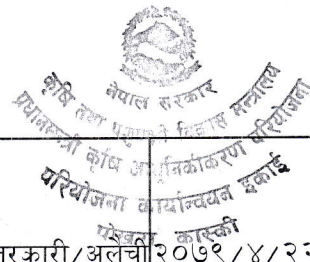 नेपाल सरकार
कृषि तथा पशुपन्छी विकास मन्त्रालय
प्रधानमन्त्री कृषि आधुनिकीकरण परियोजना
परियोजना कार्यान्वयन इकाई
पोखरा कास्की
तरकारी/अलैंची २०७९/४/२२